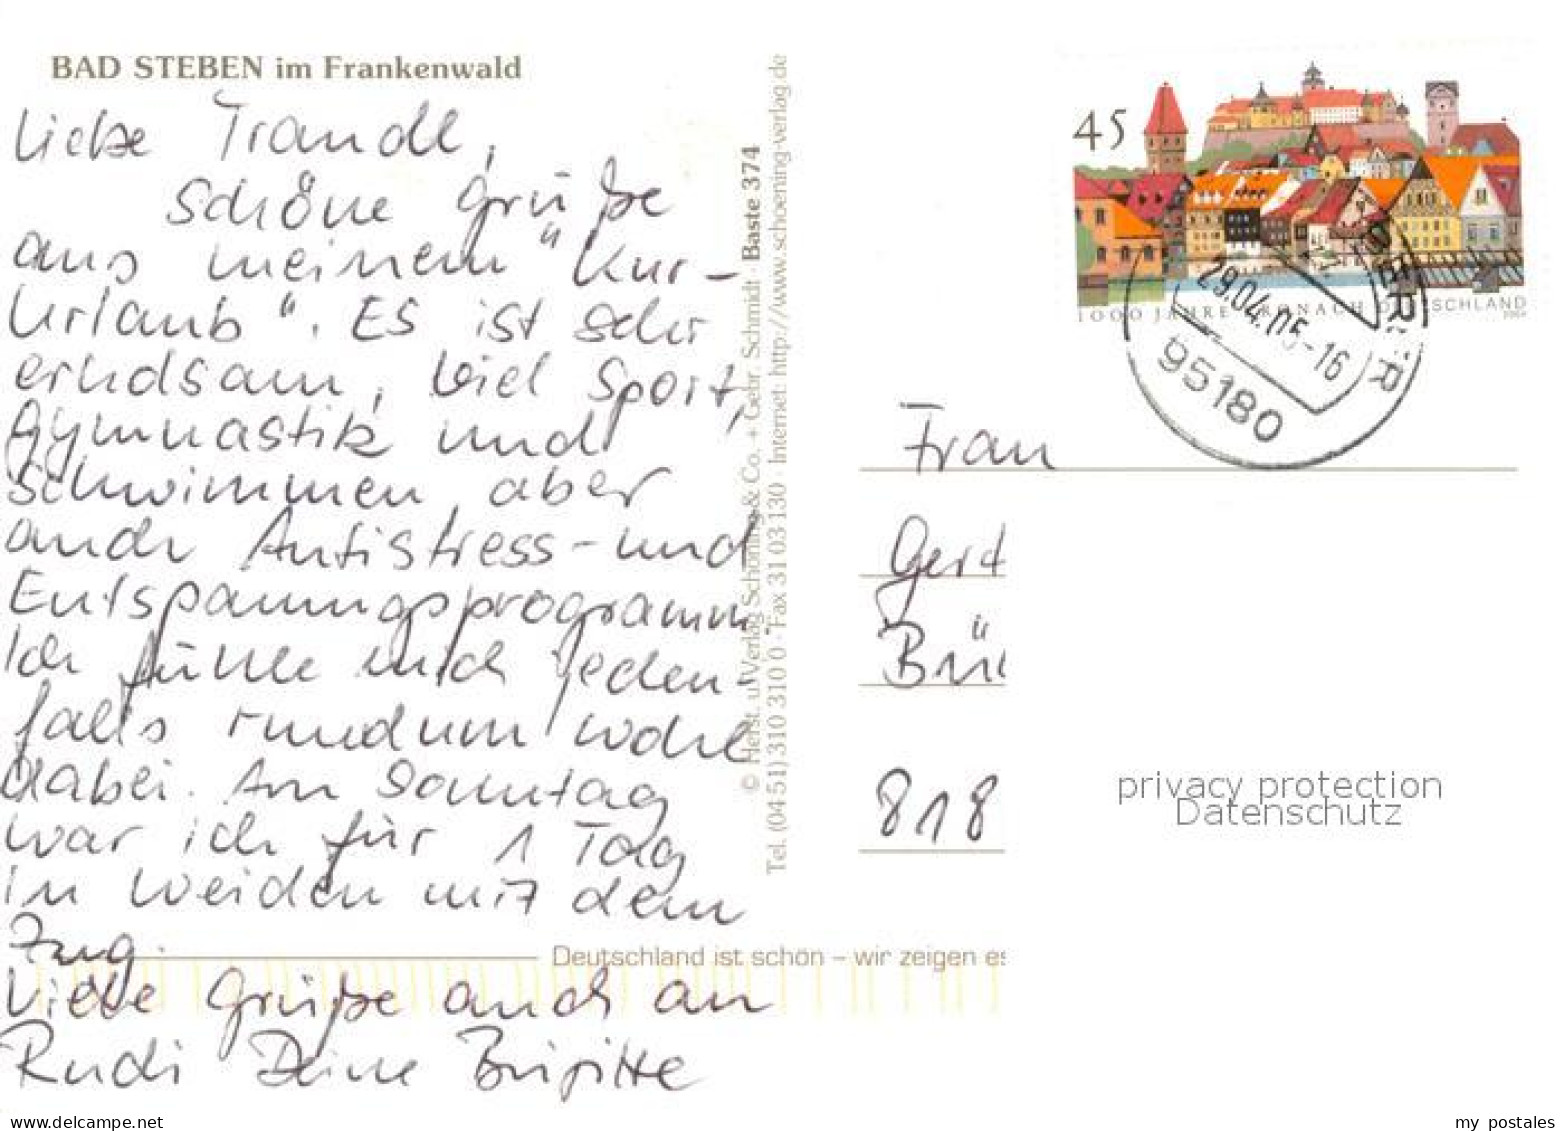 BAD STEBEN im Frankenwald
Liebe Traudl,
schöne Grüße
aus meinem "Kur-
Urlaub". Es ist sehr
erholsam, viel Sport,
Gymnastik und
Schwimmen, aber
auch Antistress- und
Entspannungsprogramm.
Ich fühle mich jeden-
falls rundum wohl
dabei. Am Sonntag
war ich für 1 Tag
in Weiden mit dem
Zug.
Liebe Grüße auch an
Rudi Deine Brigitte
Deutschland ist schön – wir zeigen es
© Herst. u. Verlag Schöning & Co. + Gebr. Schmidt · Baste 374
Tel. (04 51) 310 310 0 · Fax 31 03 130 · Internet: http://www.schoening-verlag.de
45
1000 JAHRE KRONACH DEUTSCHLAND
29.04.05-16
95180
Frau
Gert
Brü
818
privacy protection
Datenschutz
delcampe.net
my_postales